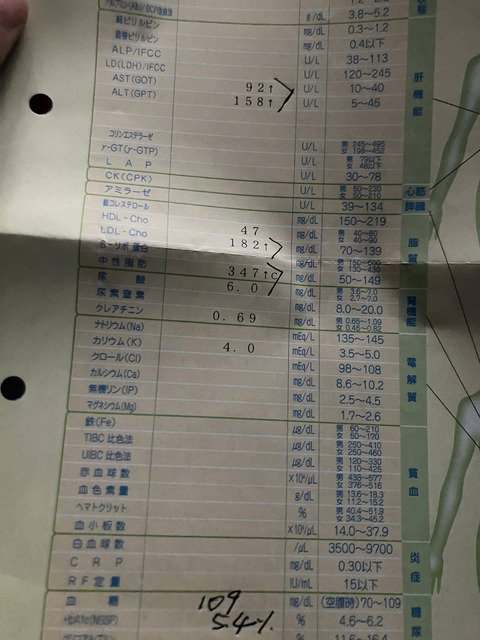 g/dL 3.8～5.2
総ビリルビン mg/dL 0.3～1.2
直接ビリルビン mg/dL 0.4以下
ALP/IFCC U/L 38～113
LD(LDH)/IFCC U/L 120～245
AST(GOT) 92↑ U/L 10～40
ALT(GPT) 158↑ U/L 5～45
肝機能
コリンエステラーゼ U/L 男 245～495 女 198～452
γ-GT(γ-GTP) U/L 男 79以下 女 48以下
LAP U/L 30～78
CK(CPK) U/L 男 50～230 女 50～210 心筋
アミラーゼ U/L 39～134 膵臓
総コレステロール mg/dL 150～219
HDL-Cho 47 mg/dL 男 40～80 女 40～90
LDL-Cho 182↑ mg/dL 70～139
β-リポ蛋白 mg/dL 女 130～430
中性脂肪 347↑C mg/dL 50～149
脂質
尿酸 6.0 mg/dL 男 3.6～7.0 女 2.7～7.0
尿素窒素 mg/dL 8.0～20.0
クレアチニン 0.69 mg/dL 男 0.65～1.09 女 0.46～0.82
腎機能
ナトリウム(Na) mEq/L 135～145
カリウム(K) 4.0 mEq/L 3.5～5.0
クロール(Cl) mEq/L 98～108
カルシウム(Ca) mg/dL 8.6～10.2
無機リン(IP) mg/dL 2.5～4.5
マグネシウム(Mg) mg/dL 1.7～2.6
電解質
鉄(Fe) μg/dL 男 60～210 女 50～170
TIBC 比色法 μg/dL 男 250～410 女 250～460
UIBC 比色法 μg/dL 男 120～330 女 110～425
赤血球数 ×10⁴/μL 男 438～577 女 376～516
血色素量 g/dL 男 13.6～18.3 女 11.2～15.2
ヘマトクリット % 男 40.4～51.9 女 34.3～45.2
血小板数 ×10⁴/μL 14.0～37.9
貧血
白血球数 /μL 3500～9700
CRP mg/dL 0.30以下
RF定量 IU/mL 15以下
炎症
血糖 109 mg/dL (空腹時)70～109
HbA1c(NGSP) 5.4% % 4.6～6.2
糖尿